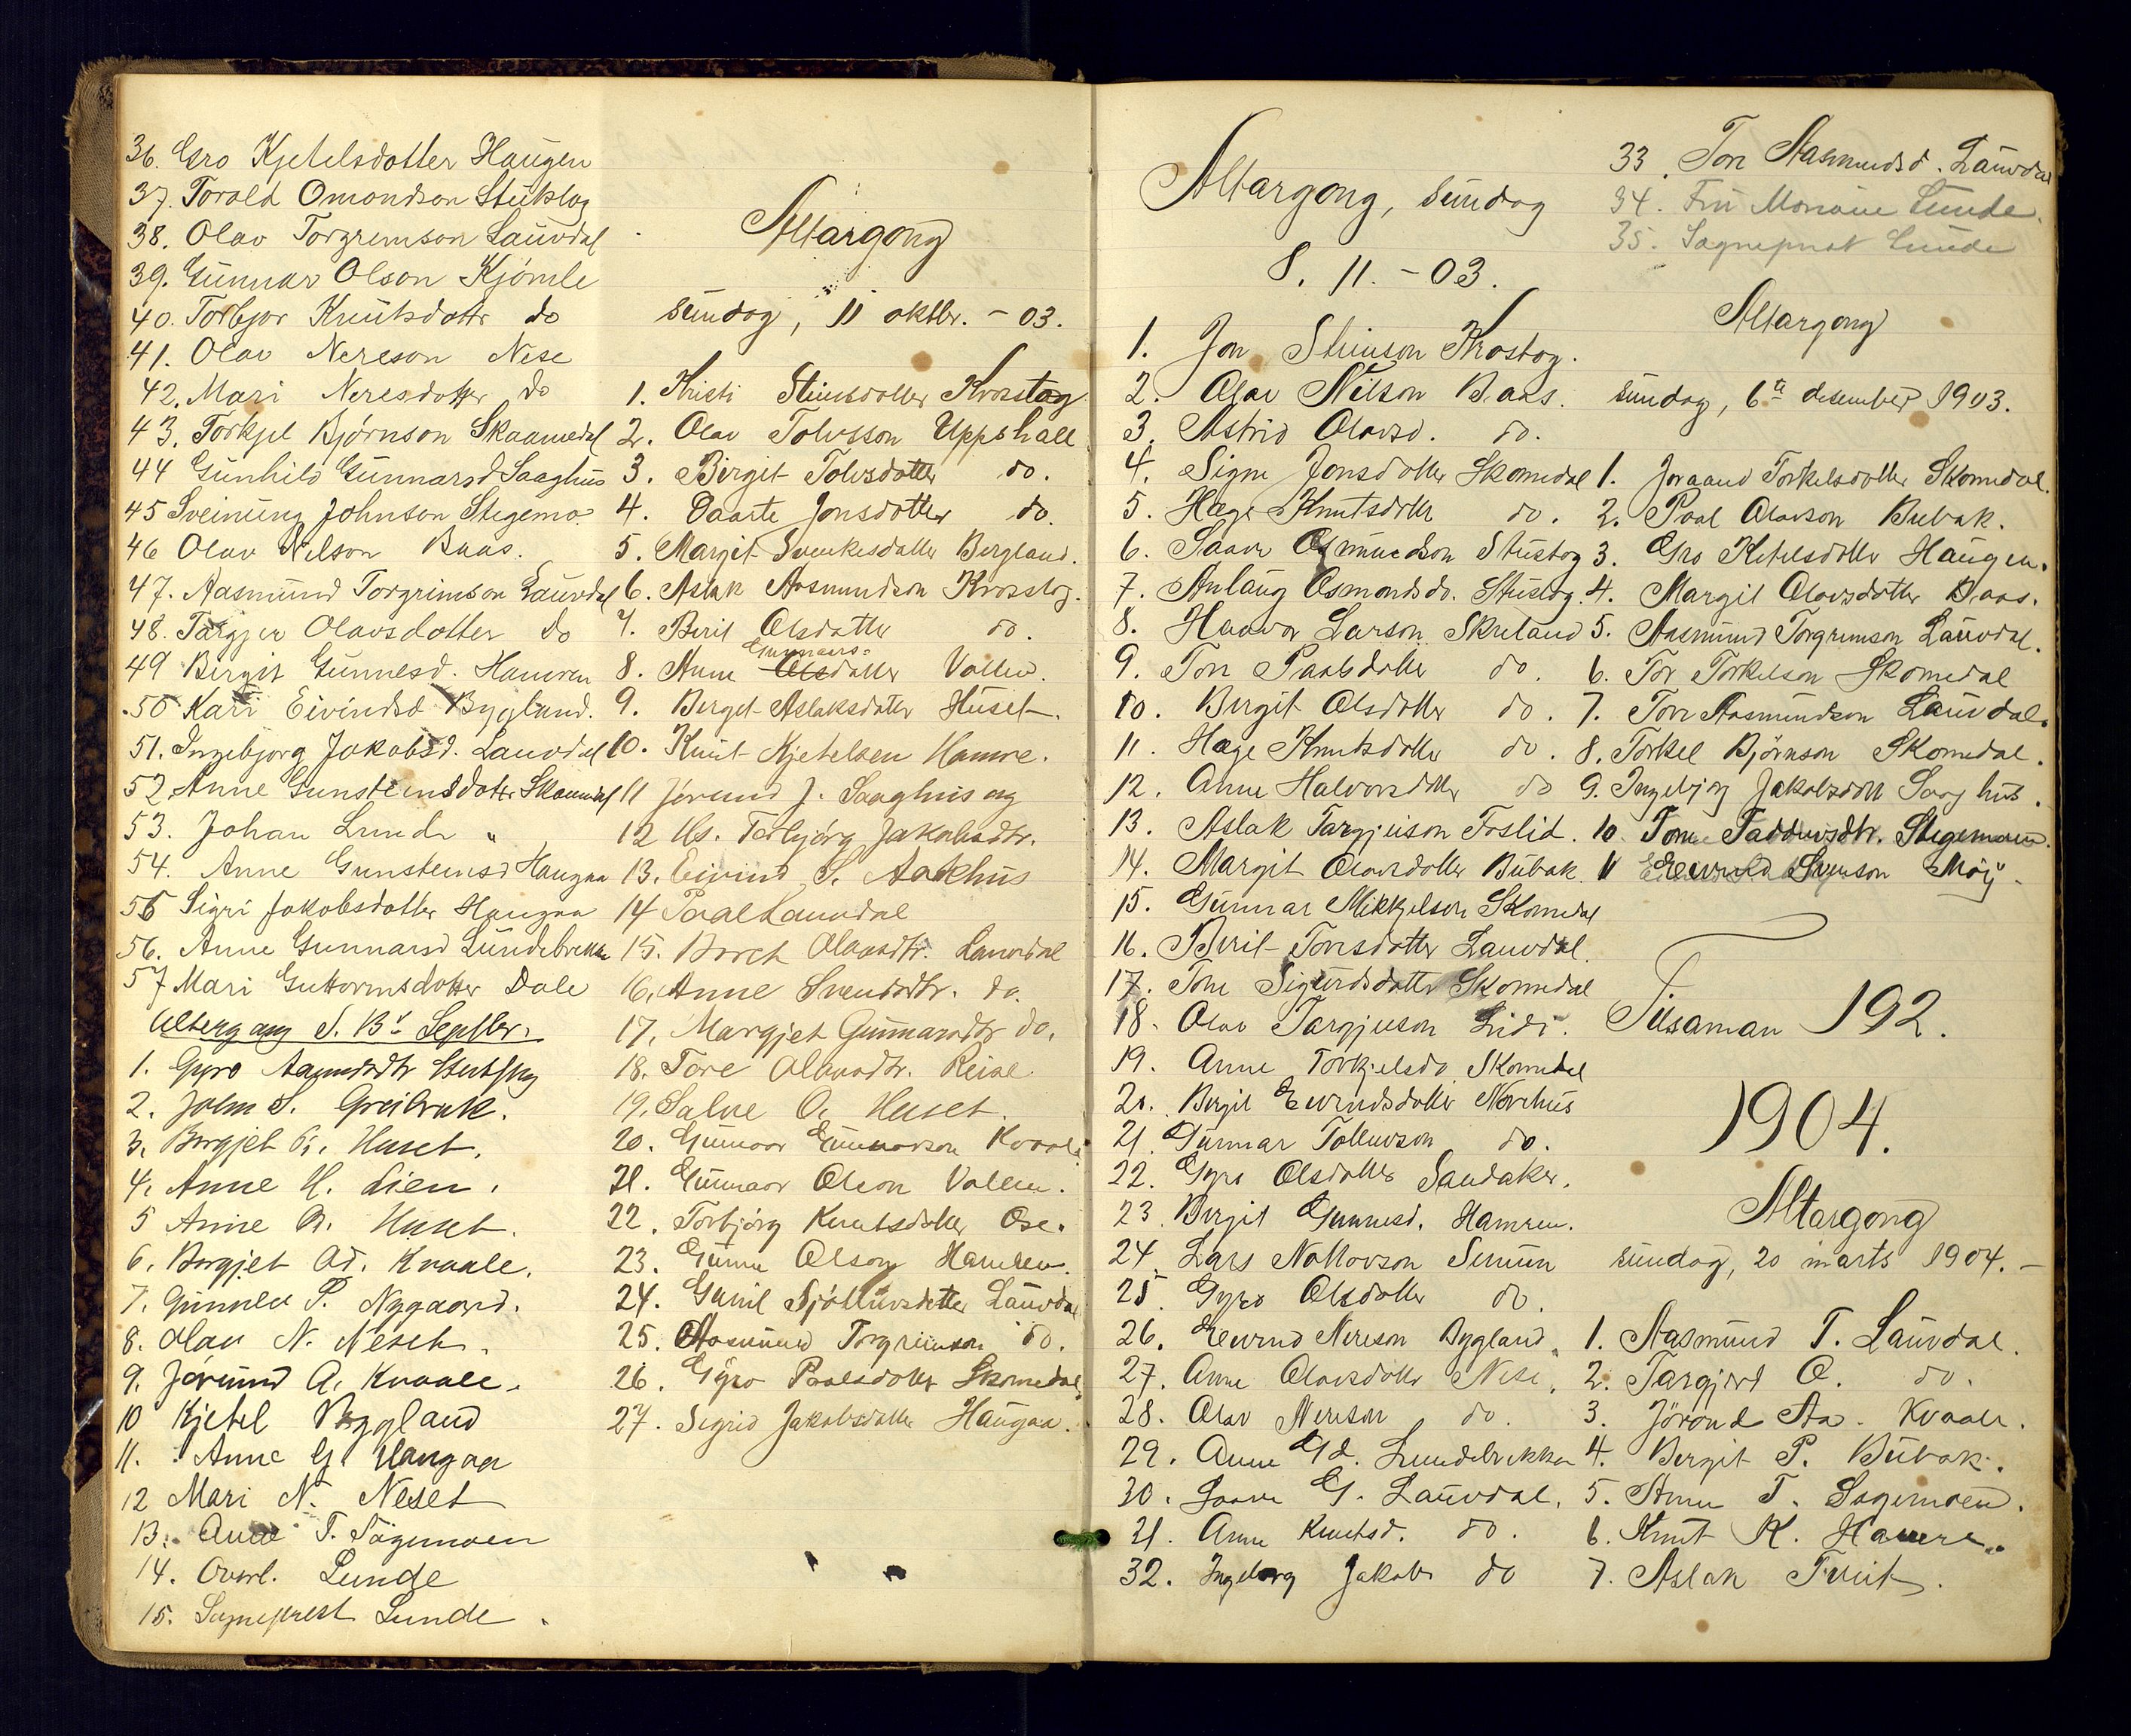 36. Gro Kjetelsdotter Haugen
37. Torald Omondson Stuktog
38. Olav Torgremson Lauvdal
39. Gunnar Olson Kjömle
40. Torbjør Knutsdottr do
41. Olav Nereson Nese
42. Mari Neresdotter do
43. Torkjel Bjørnson Skaamedal
44 Gunhild Gunnarsd Saaghus
45 Sveinung Johnson Stegemo
46 Olav Nilson Baas.
47. Aasmund Torgrimson Lauvdal
48. Targjer Olavsdotter do
49 Birgit Gunnesd. Hamren
50 Kari Eivindsd Bygland.
51. Ingebjorg Jakobsd. Lauvdal
52 Anne Gunsteinsdotter Skaamdal
53. Johan Lunde "
54. Anne Gunsteinsd Haugaa
55 Sigri Jakobsdotter Haugaa
56. Anne Gunnarsd Lundebrekka
57 Mari Guttormsdotter Dale
Altergang S. 13de Septbr.
1. Gyro Aasmdsdtr
2. John S. Greibrok.
3. Borgjet G. Huset.
4. Anne H. Lien.
5 Anne A. Huset.
6. Borgjet Ad. Kvaale.
7. Gunnleu P. Nygaard.
8. Olav N. Neset.
9. Jörund A. Kvaale.
10 Kjetel Byggland
11. Anne G. Haugaa
12 Mari N. Neset
13. Anne T. Sagemoen
14. Overl. Lunde
15. Sogneprest Lunde.
Altargong
sundag, 11 oktbr. - 03.
1. Kristi Steinsdotter Krosstog
2. Olav Tolvsson Uppshall
3. Birgit Tolvsdotter do.
4. Daarte Jonsdotter do.
5. Margit Svenkesdotter Bergland.
6. Aslak Aasmundson Krosstog.
7. Beril Olsdotter do.
Gunnars-
8. Anne Olsdotter Vollen.
9. Berget Aslaksdotter Huset.
10. Knut Kjetelsen Hamre.
11 Jørund J. Saaghus og
12 Hs. Torbjörg Jakobsdtr.
13. Eivind S. Aakhus
14 Paal Lauvdal
15. Borch Olavsdtr. Lauvdal
16. Anne Svensdtr. do.
17. Margjet Gunnarsdtr do.
18. Tore Olavsdtr. Reise
19. Salve O. Huset.
20. Gunnar Gunnarson Kvaale
21. Gunnar Olson Vollen.
22. Torbjörg Knutsdotter Ose.
23. Gunne Olson Hamren.
24. Gunil Sjöllurdotter Lauvdal
25. Aasmund Torgrimson do.
26. Gyro Paalsdotter Skomedal
27. Sigrid Jakobsdotter Haugaa.
Altargong, sundag
8. 11. - 03.
1. Jon Steinson Krostog.
2. Olav Nilson Baas.
3. Astrid Olavsd. do.
4. Signe Jonsdotter Skomedal
5. Hæge Knutsdotter do.
6. Saave Osmundson Stustog
7. Anlaug Osmondsdo. Stustog.
8. Haavar Larson Skreland
9. Tore Paalsdotter do.
10. Birgit Olsdotter do.
11. Hæge Knutsdotter do.
12. Anne Halvorsdotter do
13. Aslak Targjuson Foslid.
14. Margit Olavsdotter Bubak.
15. Gunnar Mikkjelson Skomedal
16. Beril Torsdotter Lauvdal.
17. Tone Sigurdsdotter Skomedal
18. Olav Targjuson Lidi.
19. Anne Torkjelsd Skomedal
20. Birgit Eivindsdotter Norehus
21. Gunnar Tolleivson do.
22. Gyro Olsdotter Sandaker.
23. Birgit Gunnesd. Hamren.
24. Lars Nottovson Senum
25. Gyro Olsdotter do.
26. Eivind Nereson Bygland.
27. Anne Olavsdotter Nese.
28. Olav Nereson do.
29. Anne Gd. Lundebrekka
30. Saave G. Lauvdal.
31. Anne Knutsd. do.
32. Ingeborg Jakobs do
33. Tore Aasmundsd. Lauvdal
34. Fru Lunde.
35. Sogneprest Lunde
Altargong
sundag, 6te desember 1903.
1. Joraand Torkelsdotter Skomedal.
2. Paal Olavson Bubak.
3. Gro Ketelsdotter Haugen.
4. Margit Olavsdotter Baas.
5. Aasmund Torgrimson Lauvdal.
6. Tor Torkelson Skomedal
7. Tore Aasmundson Lauvdal.
8. Torkel Björnson Skomedal.
9. Ingebjorg Jakobsdott Saaghus.
10 Tone Taddeivsdtr. Stegemoen.
11 Eivind Svenson Möy.
Tilsaman 192.
1904.
Altargong
sundag, 20 marts 1904. -
1. Aasmund T. Lauvdal.
2. Targjerd O. do.
3. Jörond Aa. Kvaale.
4. Bergit P. Bubak.
5. Anne T. Sagemoen.
6. Knut K. Hamre.
7. Aslak Tveit.